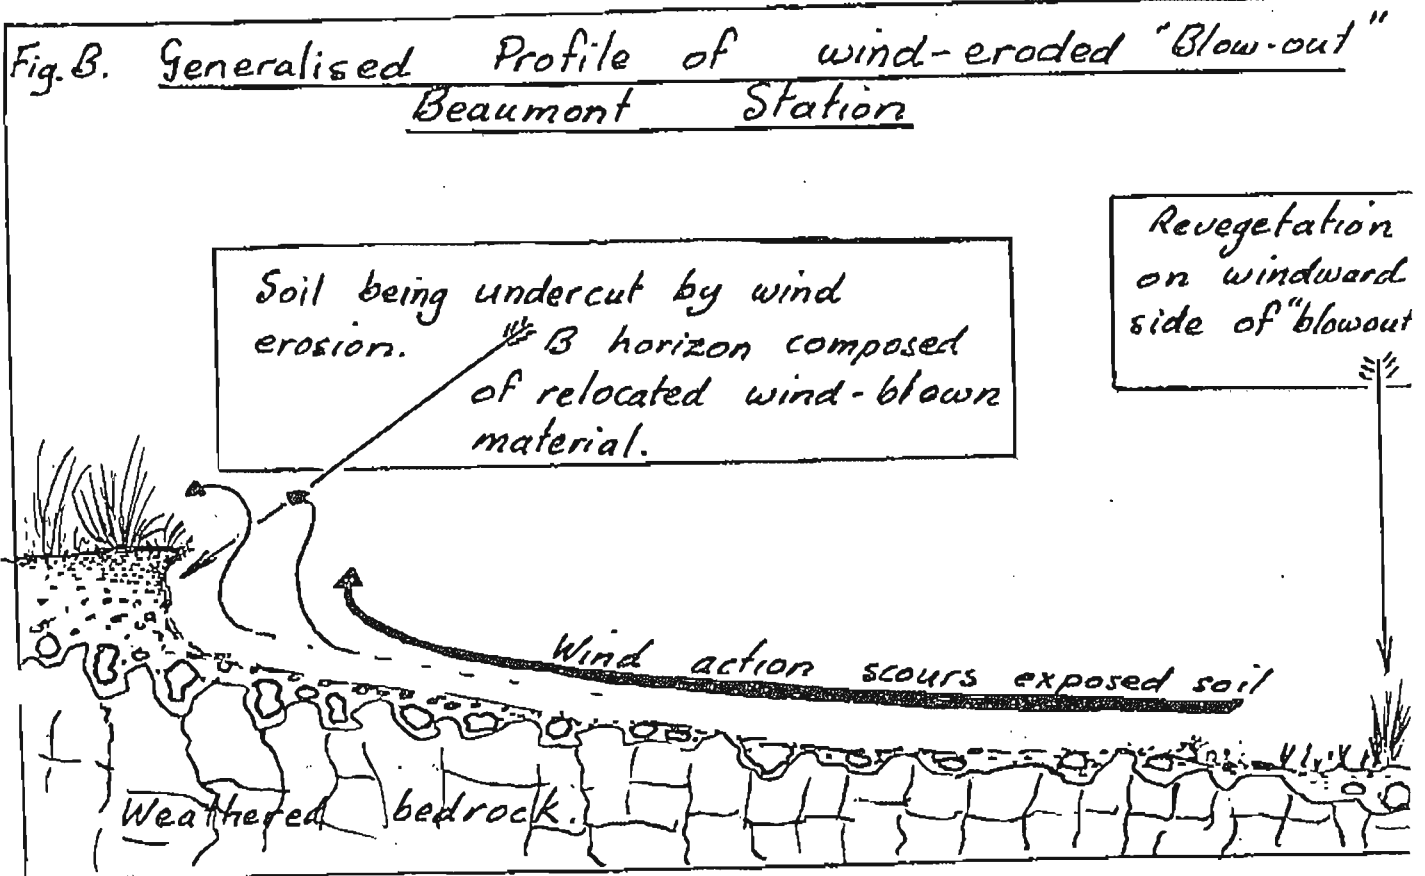 Fig. B. Generalised Profile of wind-eroded "Blow-out"
Beaumont Station
Soil being undercut by wind
erosion. B horizon composed
of relocated wind-blown
material.
Revegetation
on windward
side of "blowout
Wind action scours exposed soil
Weathered bedrock.